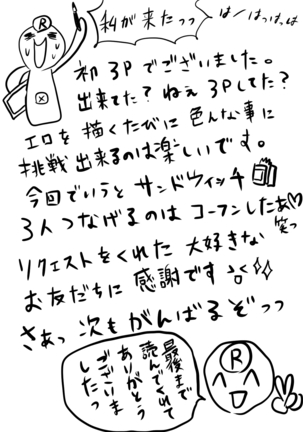 R
私が来たっっ
はーはっはっは
X
初3Pでございました。
出来てた?ねぇ3Pしてた?
エロを描くたびに色んな事に
挑戦出来るのは楽しいです。
今回でいうとサンドウィッチ
3人つなげるのはコーフンしたぁ♡
笑っ
リクエストをくれた大好きな
お友だちに感謝です
さぁっ次もがんばるぞっっ
最後まで
読んでくれて
ありがとう
ございま
したっ
R